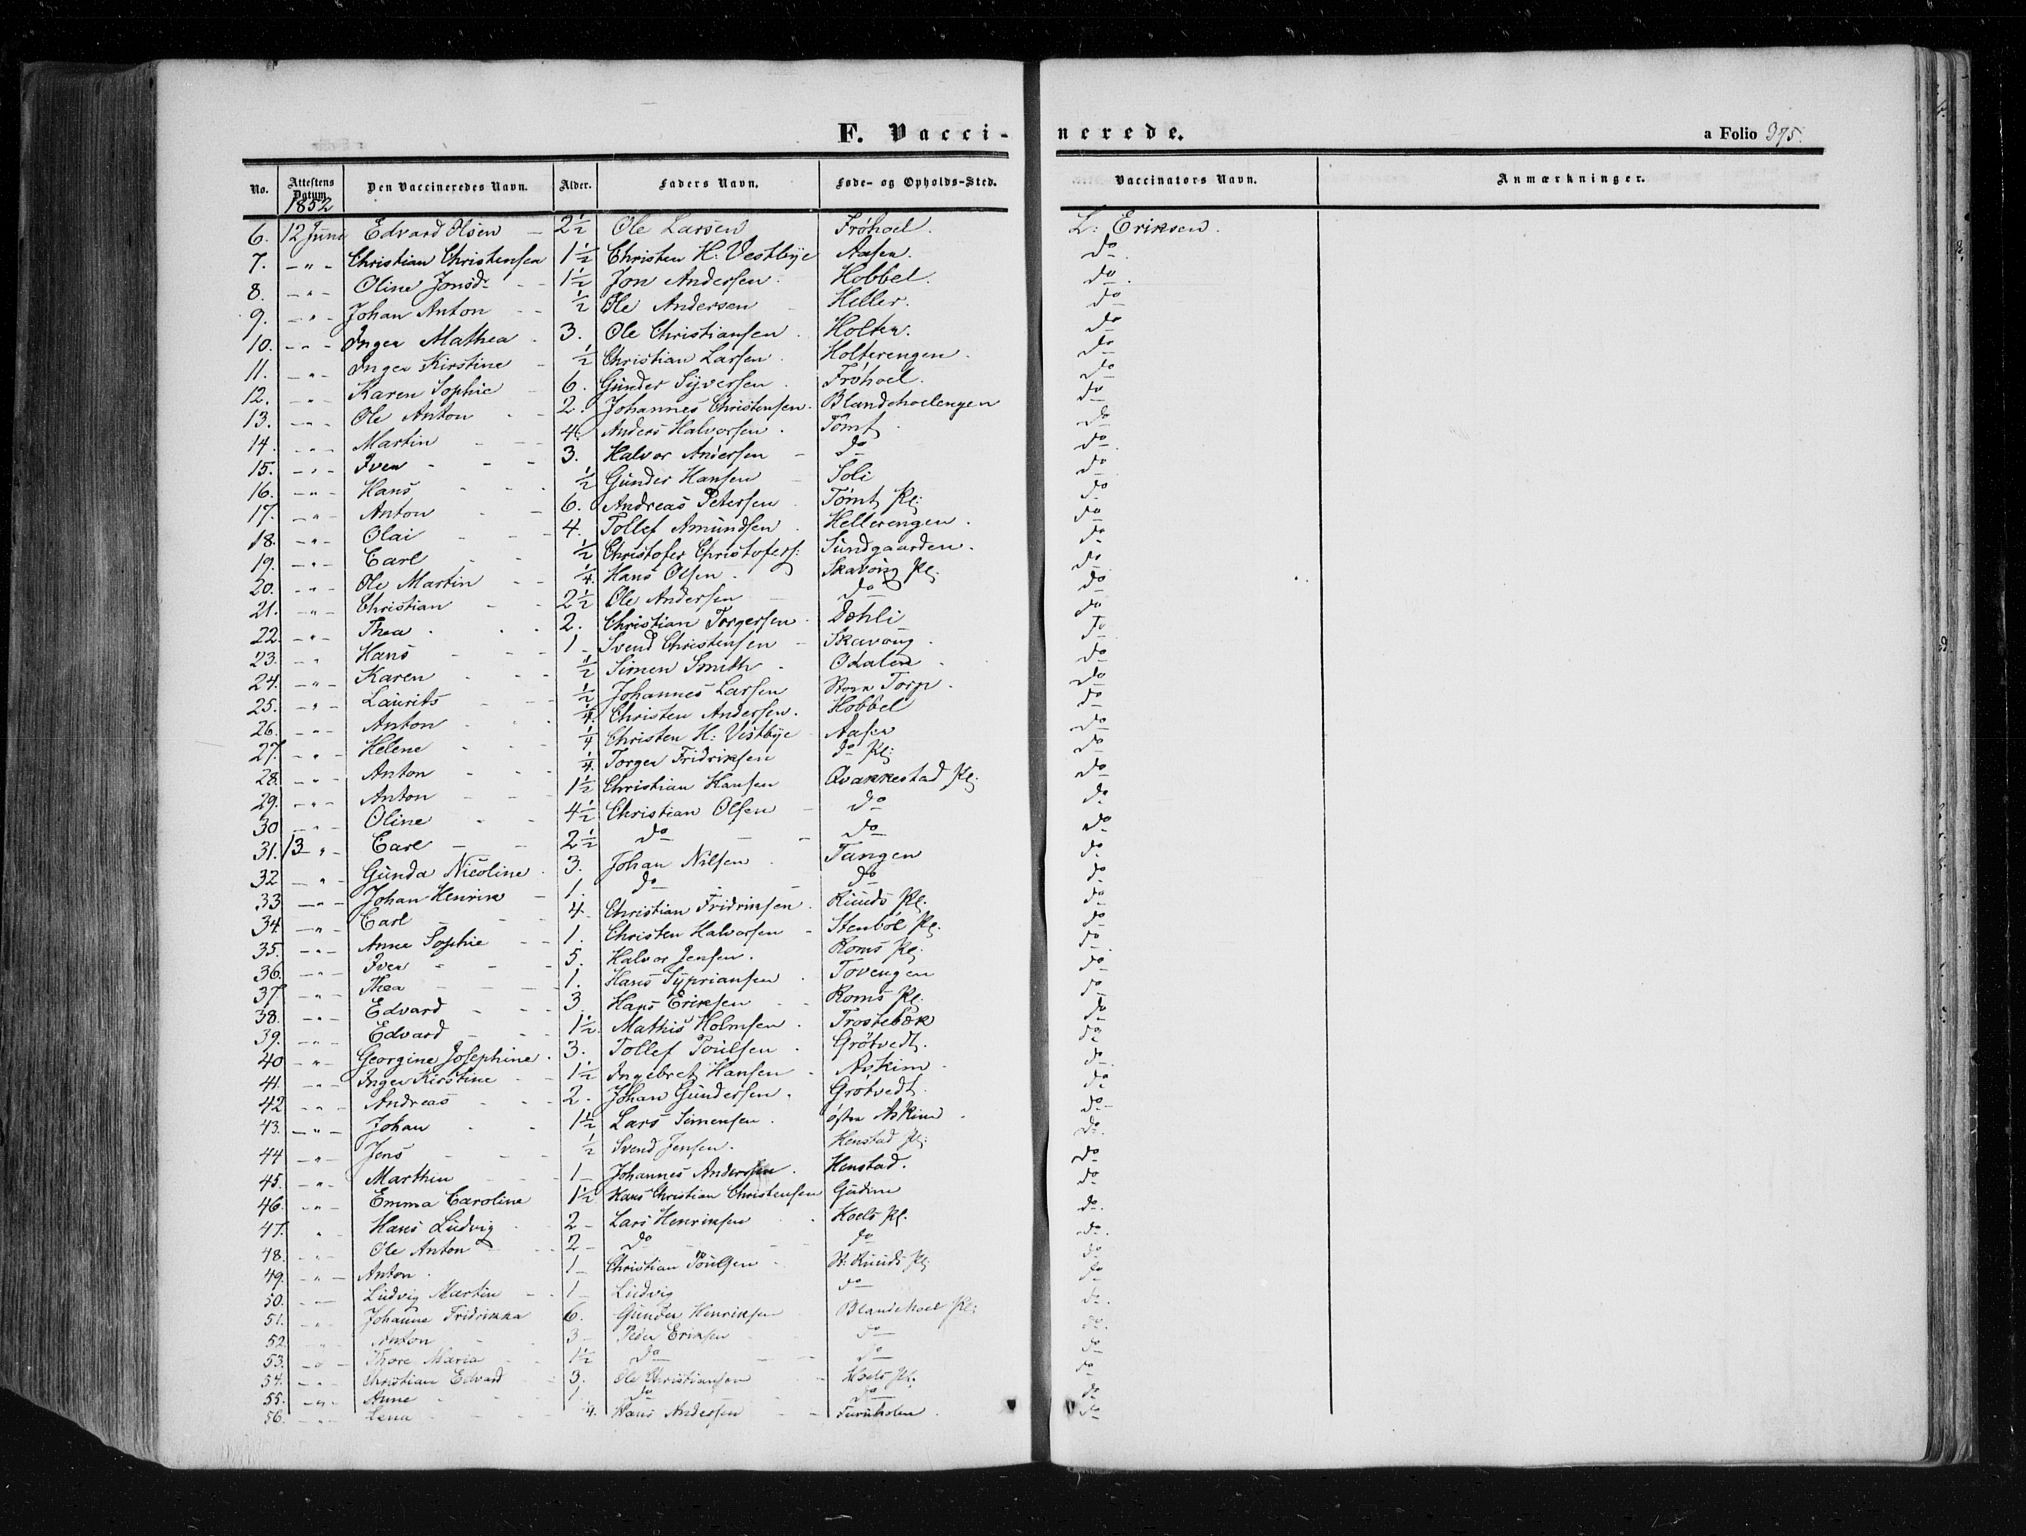 F. Vaccinerede.
a Folio 375.
No. Attestens Datum Den Vaccineredes Navn. Alder. Faders Navn. Føde- og Opholds-Sted. Vaccinators Navn. Anmærkninger.
1852
6. 12 Juni Edvard Olsen - 2½ Ole Larsen Frøhoel. L: Eriksen.
7. - " - Christian Christensen 1½ Christen H: Vestbye Aasen. do
8. - " - Oline Jonsdr - - 1½ Jon Andersen Hobbel. do
9. - " - Johan Anton - - ½ Ole Andersen Heller. do
10. - " - Inger Mathea . 3. Ole Christiansen . Holten. do
11. - " Inger Kirstine - ½ Christian Larsen . Holterengen . do
12. - " Karen Sophie - 6. Gunder Syversen . Frøhoel. do
13. - " Ole Anton - - 2. Johannes Christensen. Blandehoelengen do
14. - " Martin - - 4. Anders Halvorsen . Tomt . do
15. - " Iver - - - 3. Halvor Andersen - do do
16. - " Hans - - - ½ Gunder Hansen - Soli do
17. - " - Anton - - 6. Andreas Petersen . Tomt Pl: do
18. - " - Olai - - - 4. Tollef Amundsen . Hellerengen . do
19. - " - Carl - - - ½ Christofer Christofers: Sundgaarden. do
20. - " - Ole Martin - - ¼. Hans Olsen . Skavong Pl. do
21. - " - Christian - - 2½ Ole Andersen - do do
22. - " - Thea . - . 2. Christian Torgersen . Dæhli do
23. - " Hans - - - 1 - Svend Christensen - Skavong . do
24. - " - Karen - - - ½ Simen Smith . Odalen . do
25. - " - Laurits - - - ½ Johannes Larsen Store Torp . do
26. - " - Anton - - - ¼. Christen Andersen. Hobbel do
27. - " - Helene - - - ¼ Christen H: Vestbye Aasen do
28. - " - Anton - - - ¼. Torger Fridriksen do Pl: do
29. - " - Anton - - - 1½ Christian Hansen Qvakkestad Pl. do
30 - " - Oline - - 4½ Christian Olsen - do do
31. 13 - " - Carl - - 2½ do - - do do
32 - " - Gunda Nicoline . 3. Johan Nilsen . Tangen do
33 - " - Johan Henrik - 1. do - - do do
34. - " - Carl - - - 4. Christian Fridriksen . Ruuds Pl. do
35. - " - Anne Sophie - - 1. Christen Halvorsen - Stenbøl Pl. do
36. - " - Iver - - - 5. Halvor Jensen . Roms Pl. do
37 - " - Thea - - - 1. Hans Sypriansen . Tovengen do
38. - " - Edvard - - - 3 Hans Eriksen - - Roms Pl. do
39. - " - Edvard - - - 1½. Mathis Holmsen . Trostebæk do
40 - " - Georgine Josephine . 3. Tollef Poulsen . Grøtvedt. do
41. - " - Inger Kirstine - - 1½ Ingebret Hansen . Askim do
42 - " - Andreas - - - 2. Johan Gundersen . Grøtvedt. do
43. - " - Johan - - 1½ Lars Simensen . østre Askim . do
44 - " - Jens - - - ½ Svend Jensen . Henstad Pl: do
45. - " Marthin - - - 1 - Johannes Andersen . Henstad. do
46. - " - Emma Caroline 1½ Hans Christian Christensen Gudim do
47. " Hans Ludvig - 2 - Lars Henriksen . Hoels Pl. do
48. - " Ole Anton - - 2 - do - - do do
49. - " - Anton . 1 - Christian Poulsen - St: Ruuds Pl: do
50. - - Ludvig Martin - - 1 - Ludvig do do
51. - " Johanne Fridrikka 6. Gunder Henriksen Blandehoel Pl: do
52. " Anton - 3 - Peder Eriksen - do do
53. - " - Thore Maria - 1½ do - - do do
54. - " - Christian Edvard - - 3. Ole Christiansen - Hoels Pl. do
55. - " - Anne - - - 1 do do do
56. - " - Lena - - - ¼. Hans Andersen - - Furuholen . do